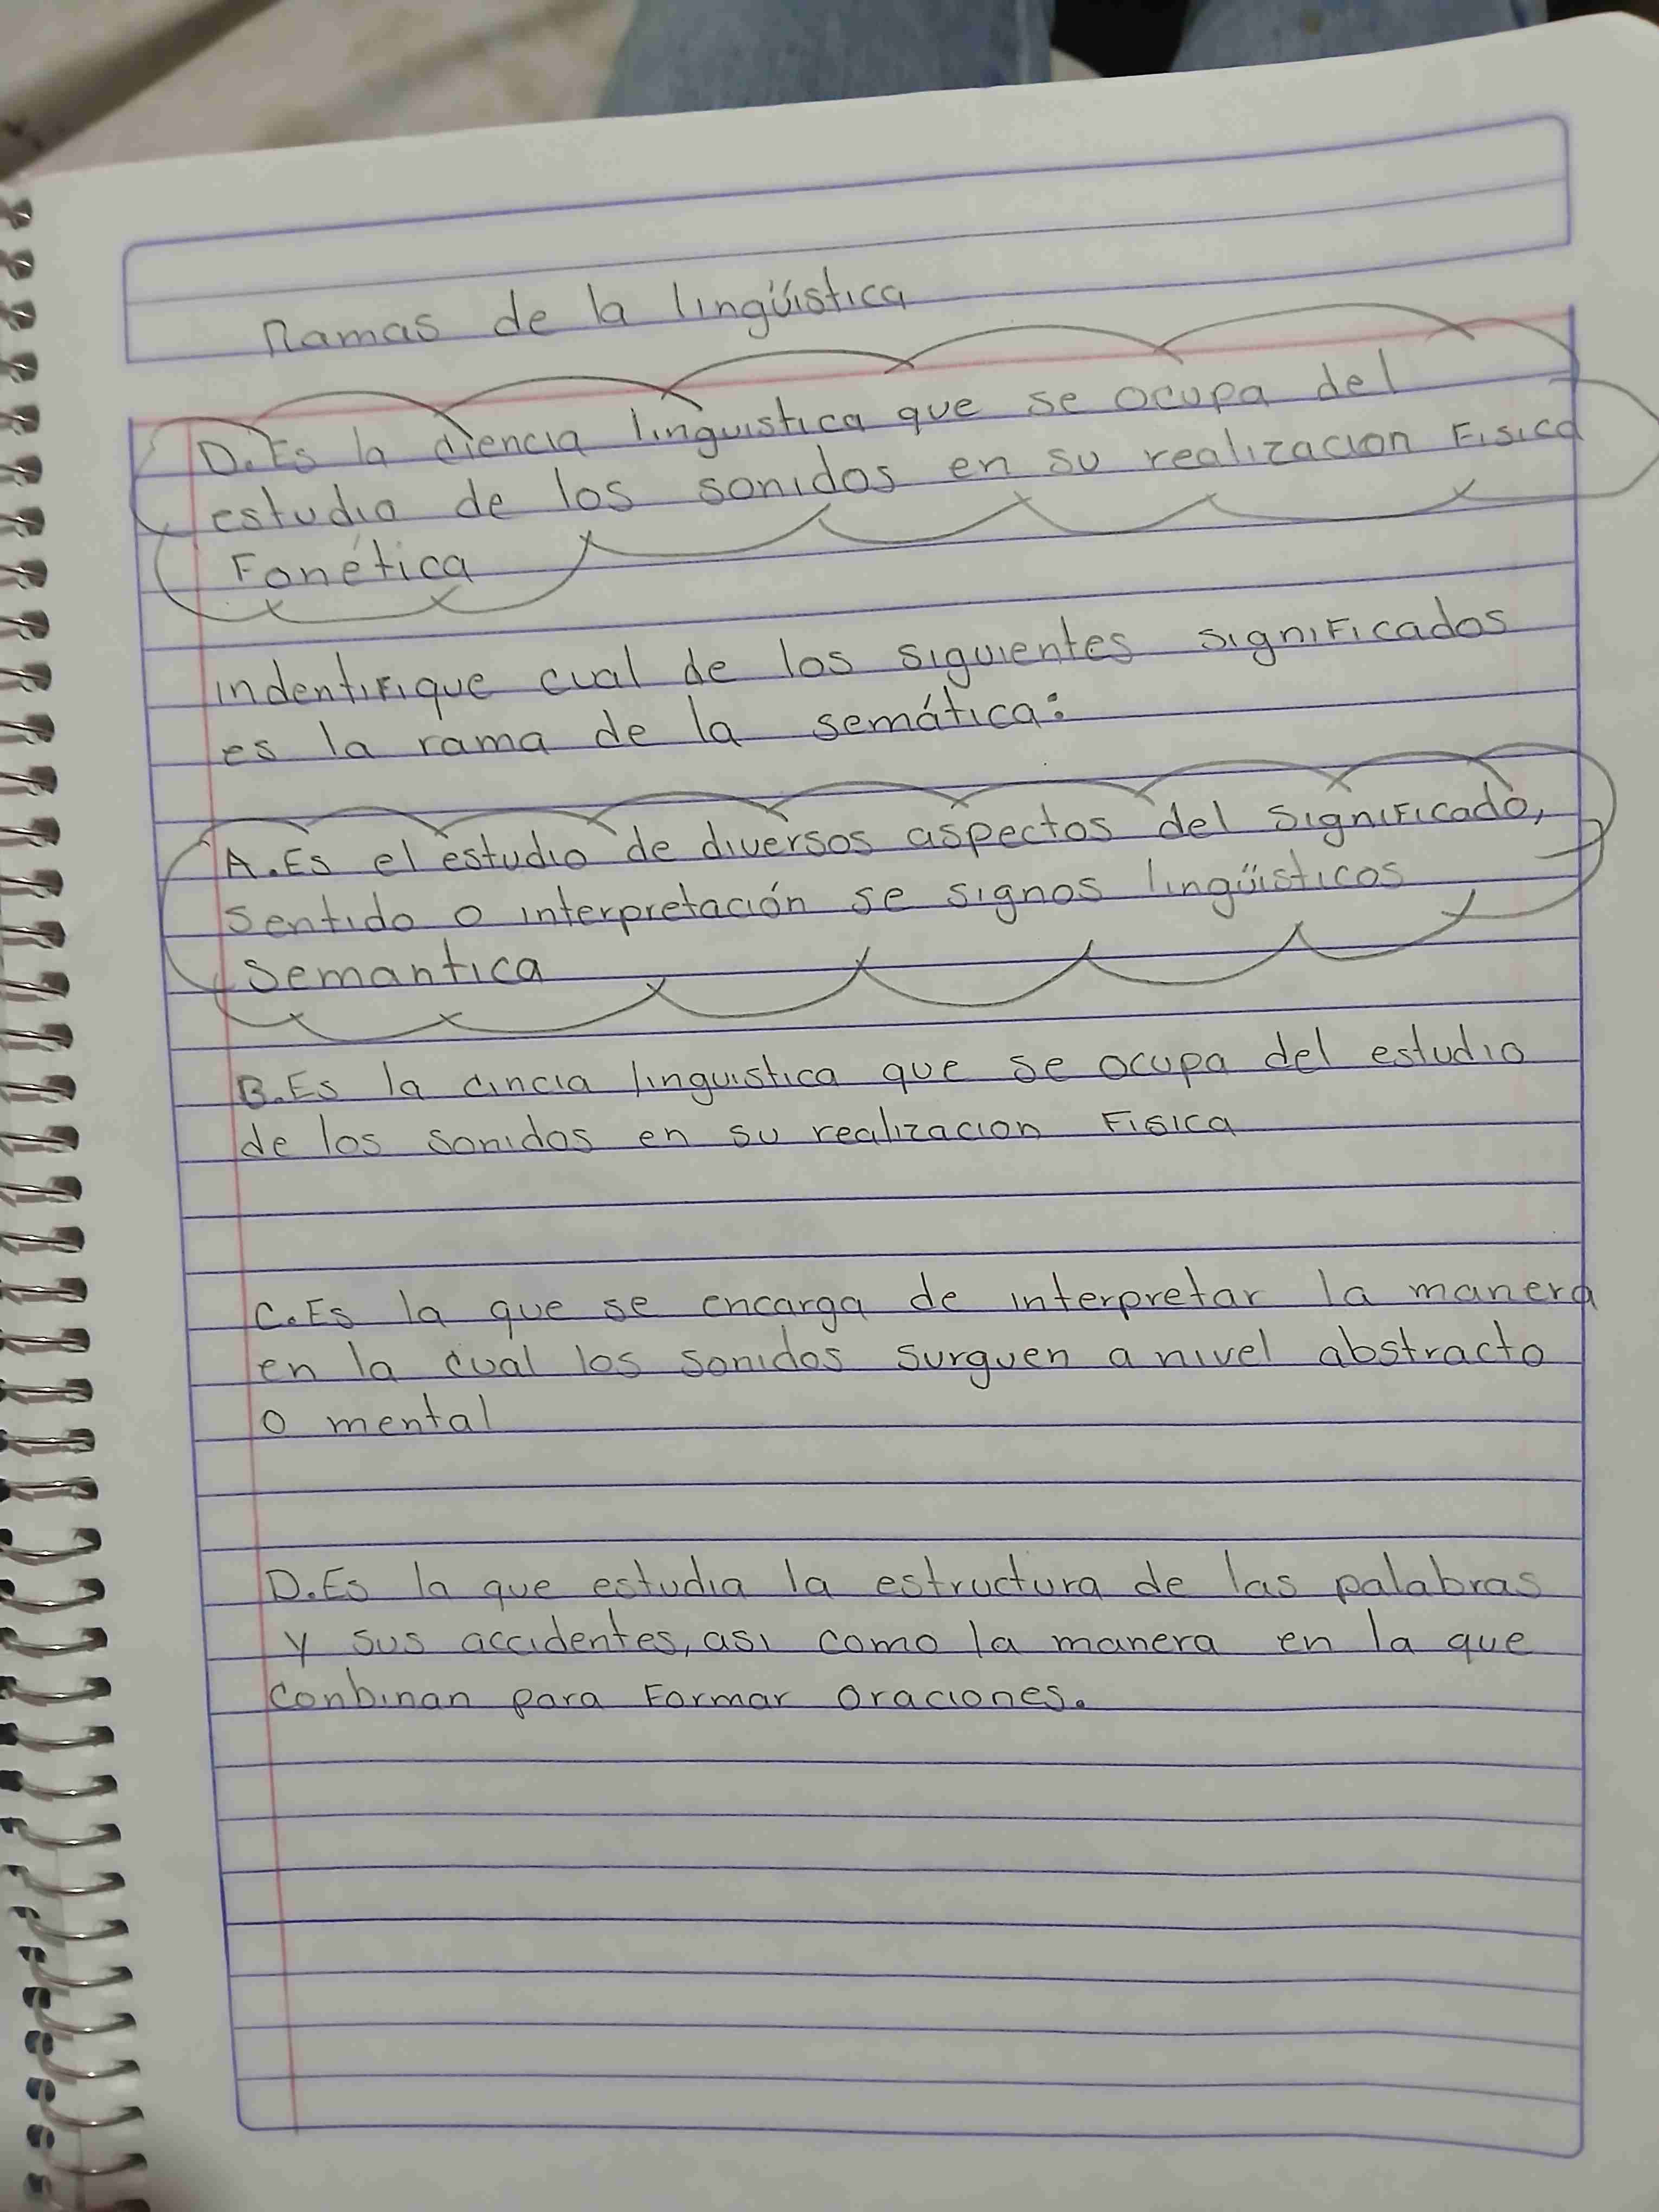 Ramas de la lingüística
D. Es la ciencia linguistica que se ocupa del
estudio de los sonidos en su realizacion Fisica
Fonética
indentifique cual de los siguientes significados
es la rama de la semática:
A. Es el estudio de diversos aspectos del significado,
sentido o interpretación se signos lingüisticos
semantica
B. Es la cincia linguistica que se ocupa del estudio
de los sonidos en su realizacion Fisica
C. Es la que se encarga de interpretar la manera
en la cual los sonidos surguen a nivel abstracto
o mental
D. Es la que estudia la estructura de las palabras
y sus accidentes, asi como la manera en la que
conbinan para Formar oraciones.